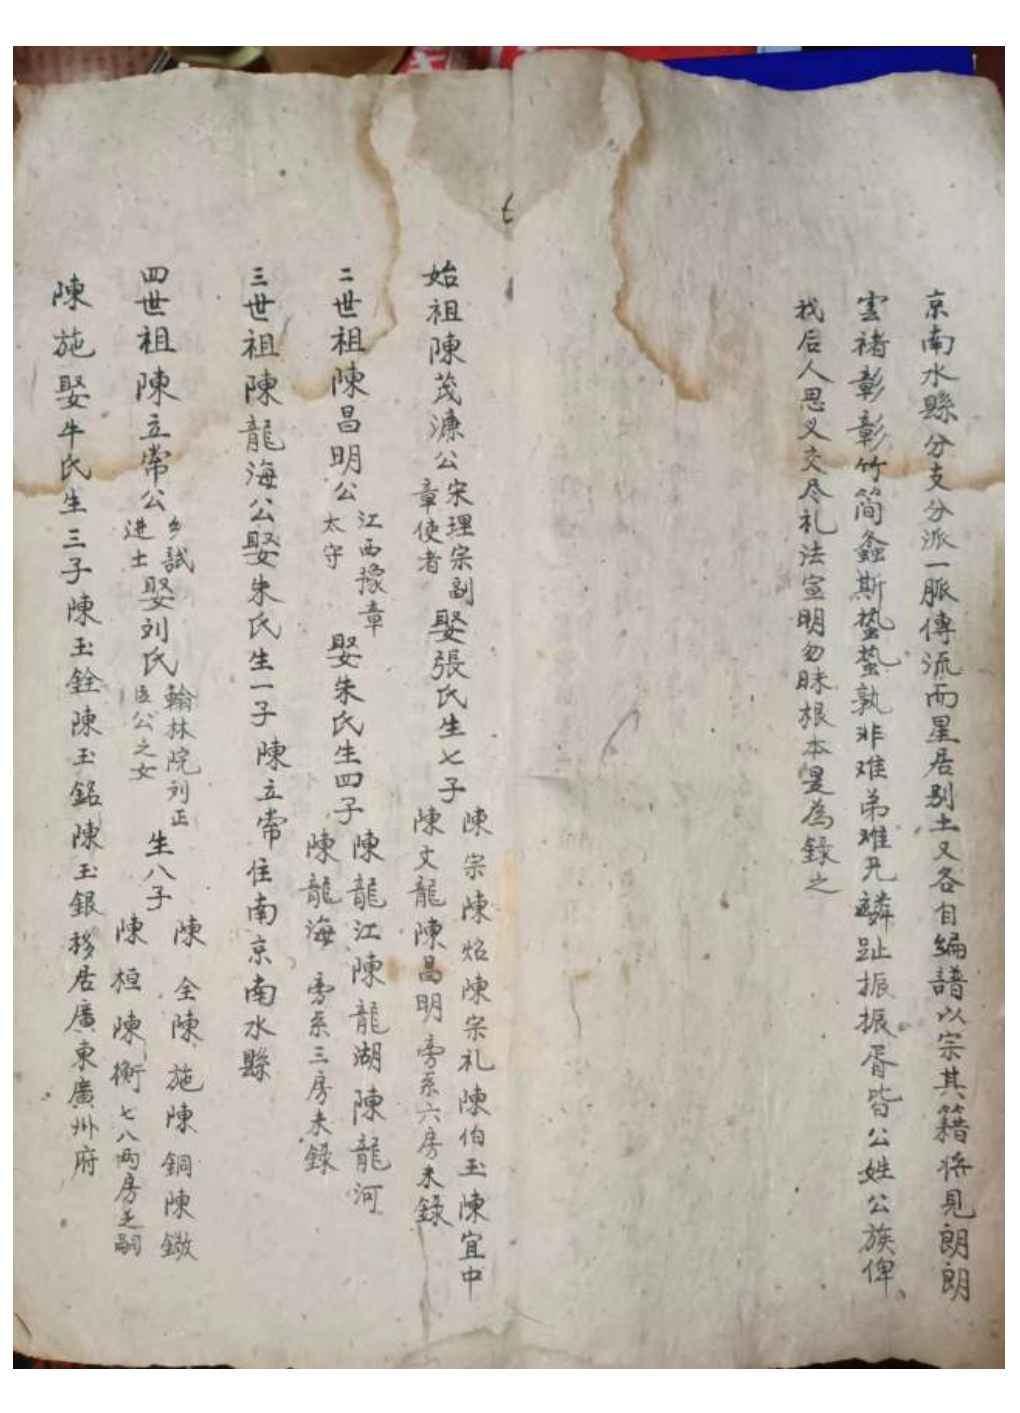 京南水縣分支分派一脈傳流而星居别土又各自編譜以宗其籍将見朗朗
雲禇彰彰竹简螽斯蟄蟄孰非难弟难兄麟趾振振胥皆公姓公族俾
我后人思义交尽礼法宣明勿昧根本是為錄之
始祖陳茂濂公
宋理宗副
章使者
娶張氏生七子
陳宗陳炤陳宗礼陳伯玉陳宜中
陳文龍陳昌明旁系六房未錄
二世祖陳昌明公
江西豫章
太守
娶朱氏生四子
陳龍江陳龍湖陳龍河
陳龍海旁系三房未錄
三世祖陳龍海公娶朱氏生一子陳立常住南京南水縣
四世祖陳立常公
乡試
进士
娶刘氏
翰林院刘正
公之女
生八子
陳全陳施陳銅陳鏾
陳桓陳衡七八两房乏嗣
陳施娶牛氏生三子陳玉銓陳玉銘陳玉銀移居廣東廣州府